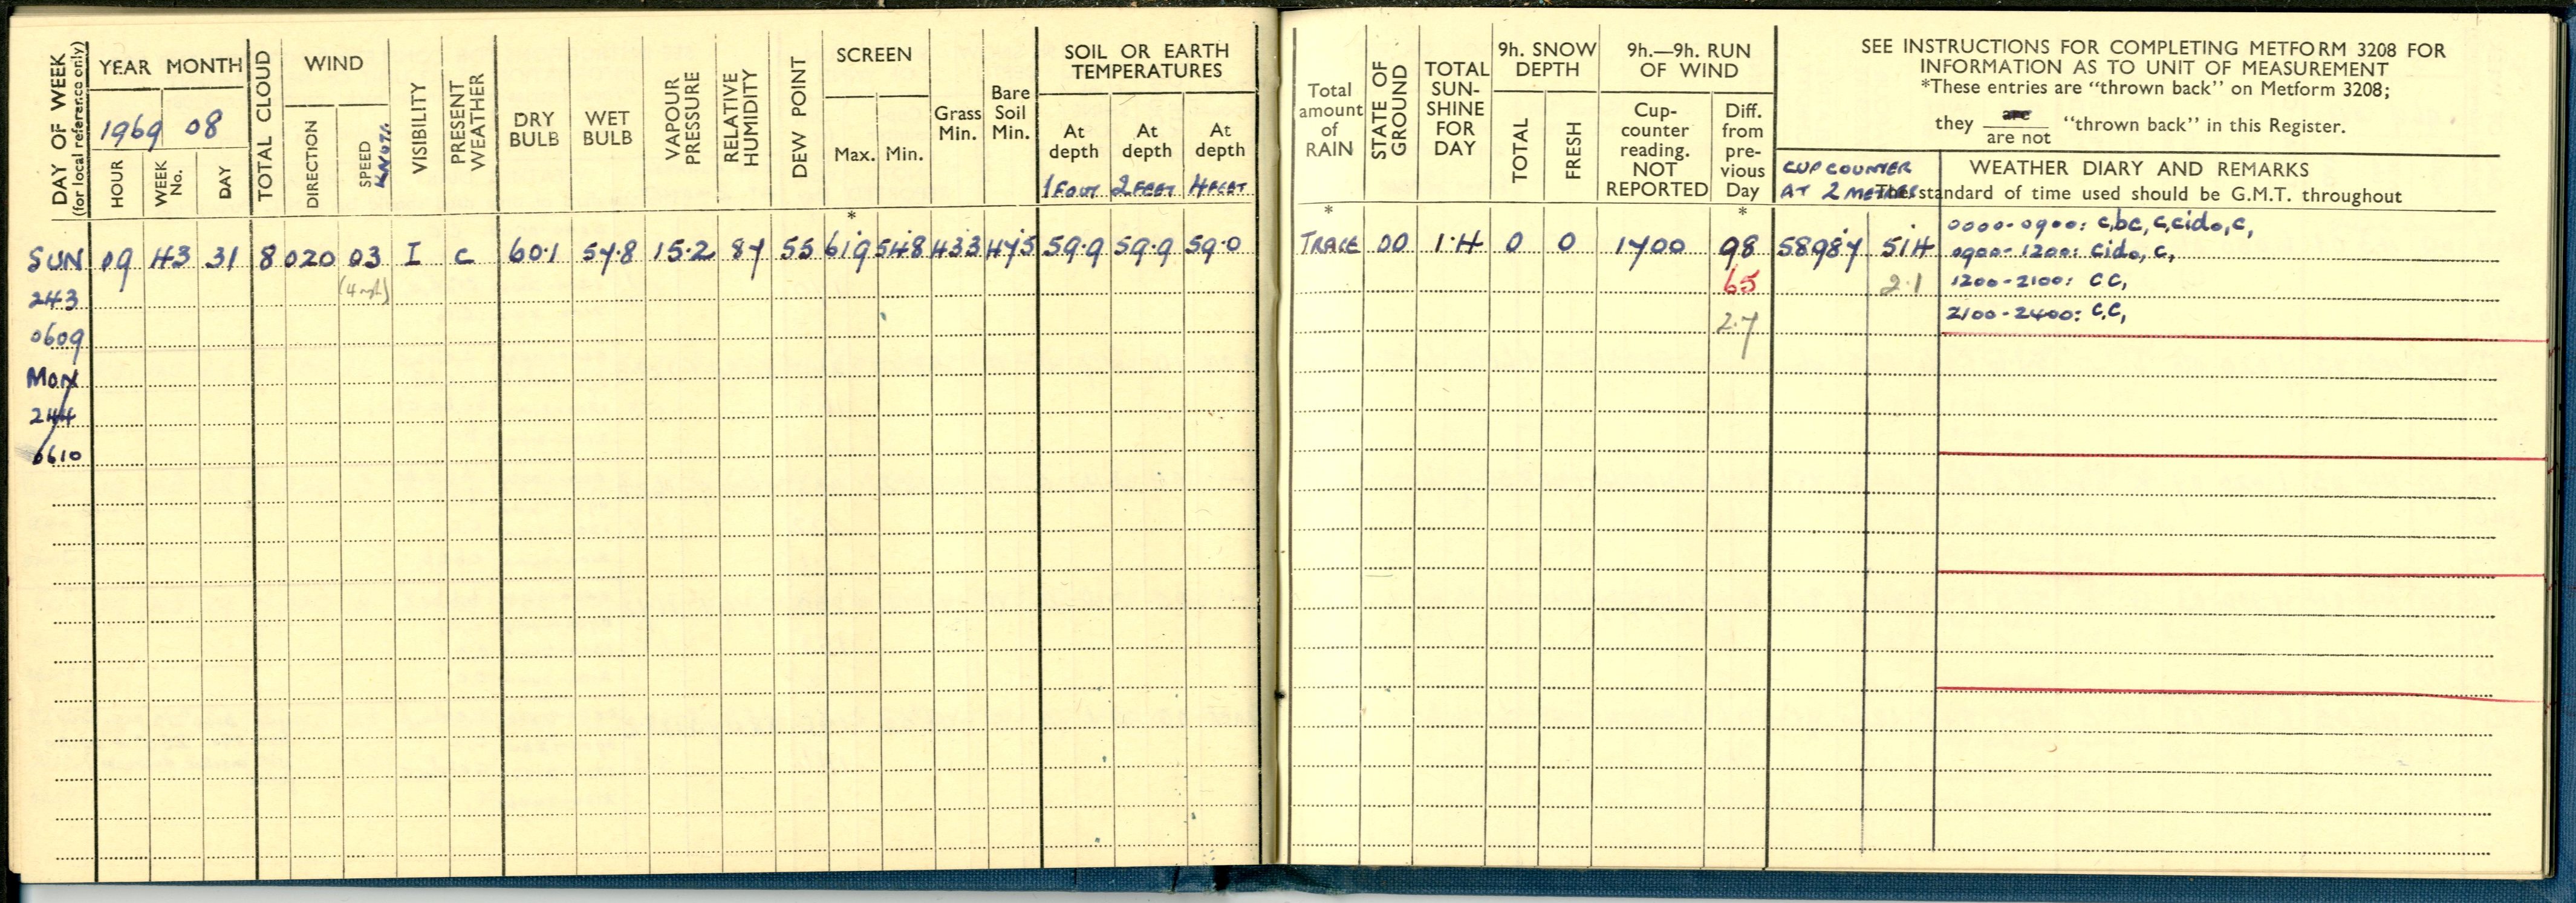 DAY OF WEEK
(for local reference only)
YEAR MONTH
1969 08
HOUR
WEEK No.
DAY
TOTAL CLOUD
WIND
DIRECTION
SPEED KNOTS
VISIBILITY
PRESENT WEATHER
DRY BULB
WET BULB
VAPOUR PRESSURE
RELATIVE HUMIDITY
DEW POINT
SCREEN
Max. Min.
Grass Min.
Bare Soil Min.
SOIL OR EARTH
TEMPERATURES
At depth At depth At depth
1 FOOT 2 FEET 4 FEET
*
SUN 09 43 31 8 020 03 I C 60.1 57.8 15.2 87 55 61.9 54.8 43.3 47.5 59.9 59.9 59.0
243 (4 mph)
0609
MON
244
0610
Total amount of RAIN
STATE OF GROUND
TOTAL SUN-SHINE FOR DAY
9h. SNOW DEPTH
TOTAL
FRESH
9h.—9h. RUN OF WIND
Cup-counter reading. NOT REPORTED
Diff. from pre-vious Day
SEE INSTRUCTIONS FOR COMPLETING METFORM 3208 FOR
INFORMATION AS TO UNIT OF MEASUREMENT
*These entries are "thrown back" on Metform 3208;
they are / are not "thrown back" in this Register.
CUP COUNTER
AT 2 METRES
WEATHER DIARY AND REMARKS
The standard of time used should be G.M.T. throughout
* *
TRACE 00 1.4 0 0 1700 98 58987 514
65 2.1
2.7
0000-0900: c,bc,c,cido,c,
0900-1200: cido, c,
1200-2100: CC,
2100-2400: C,C,